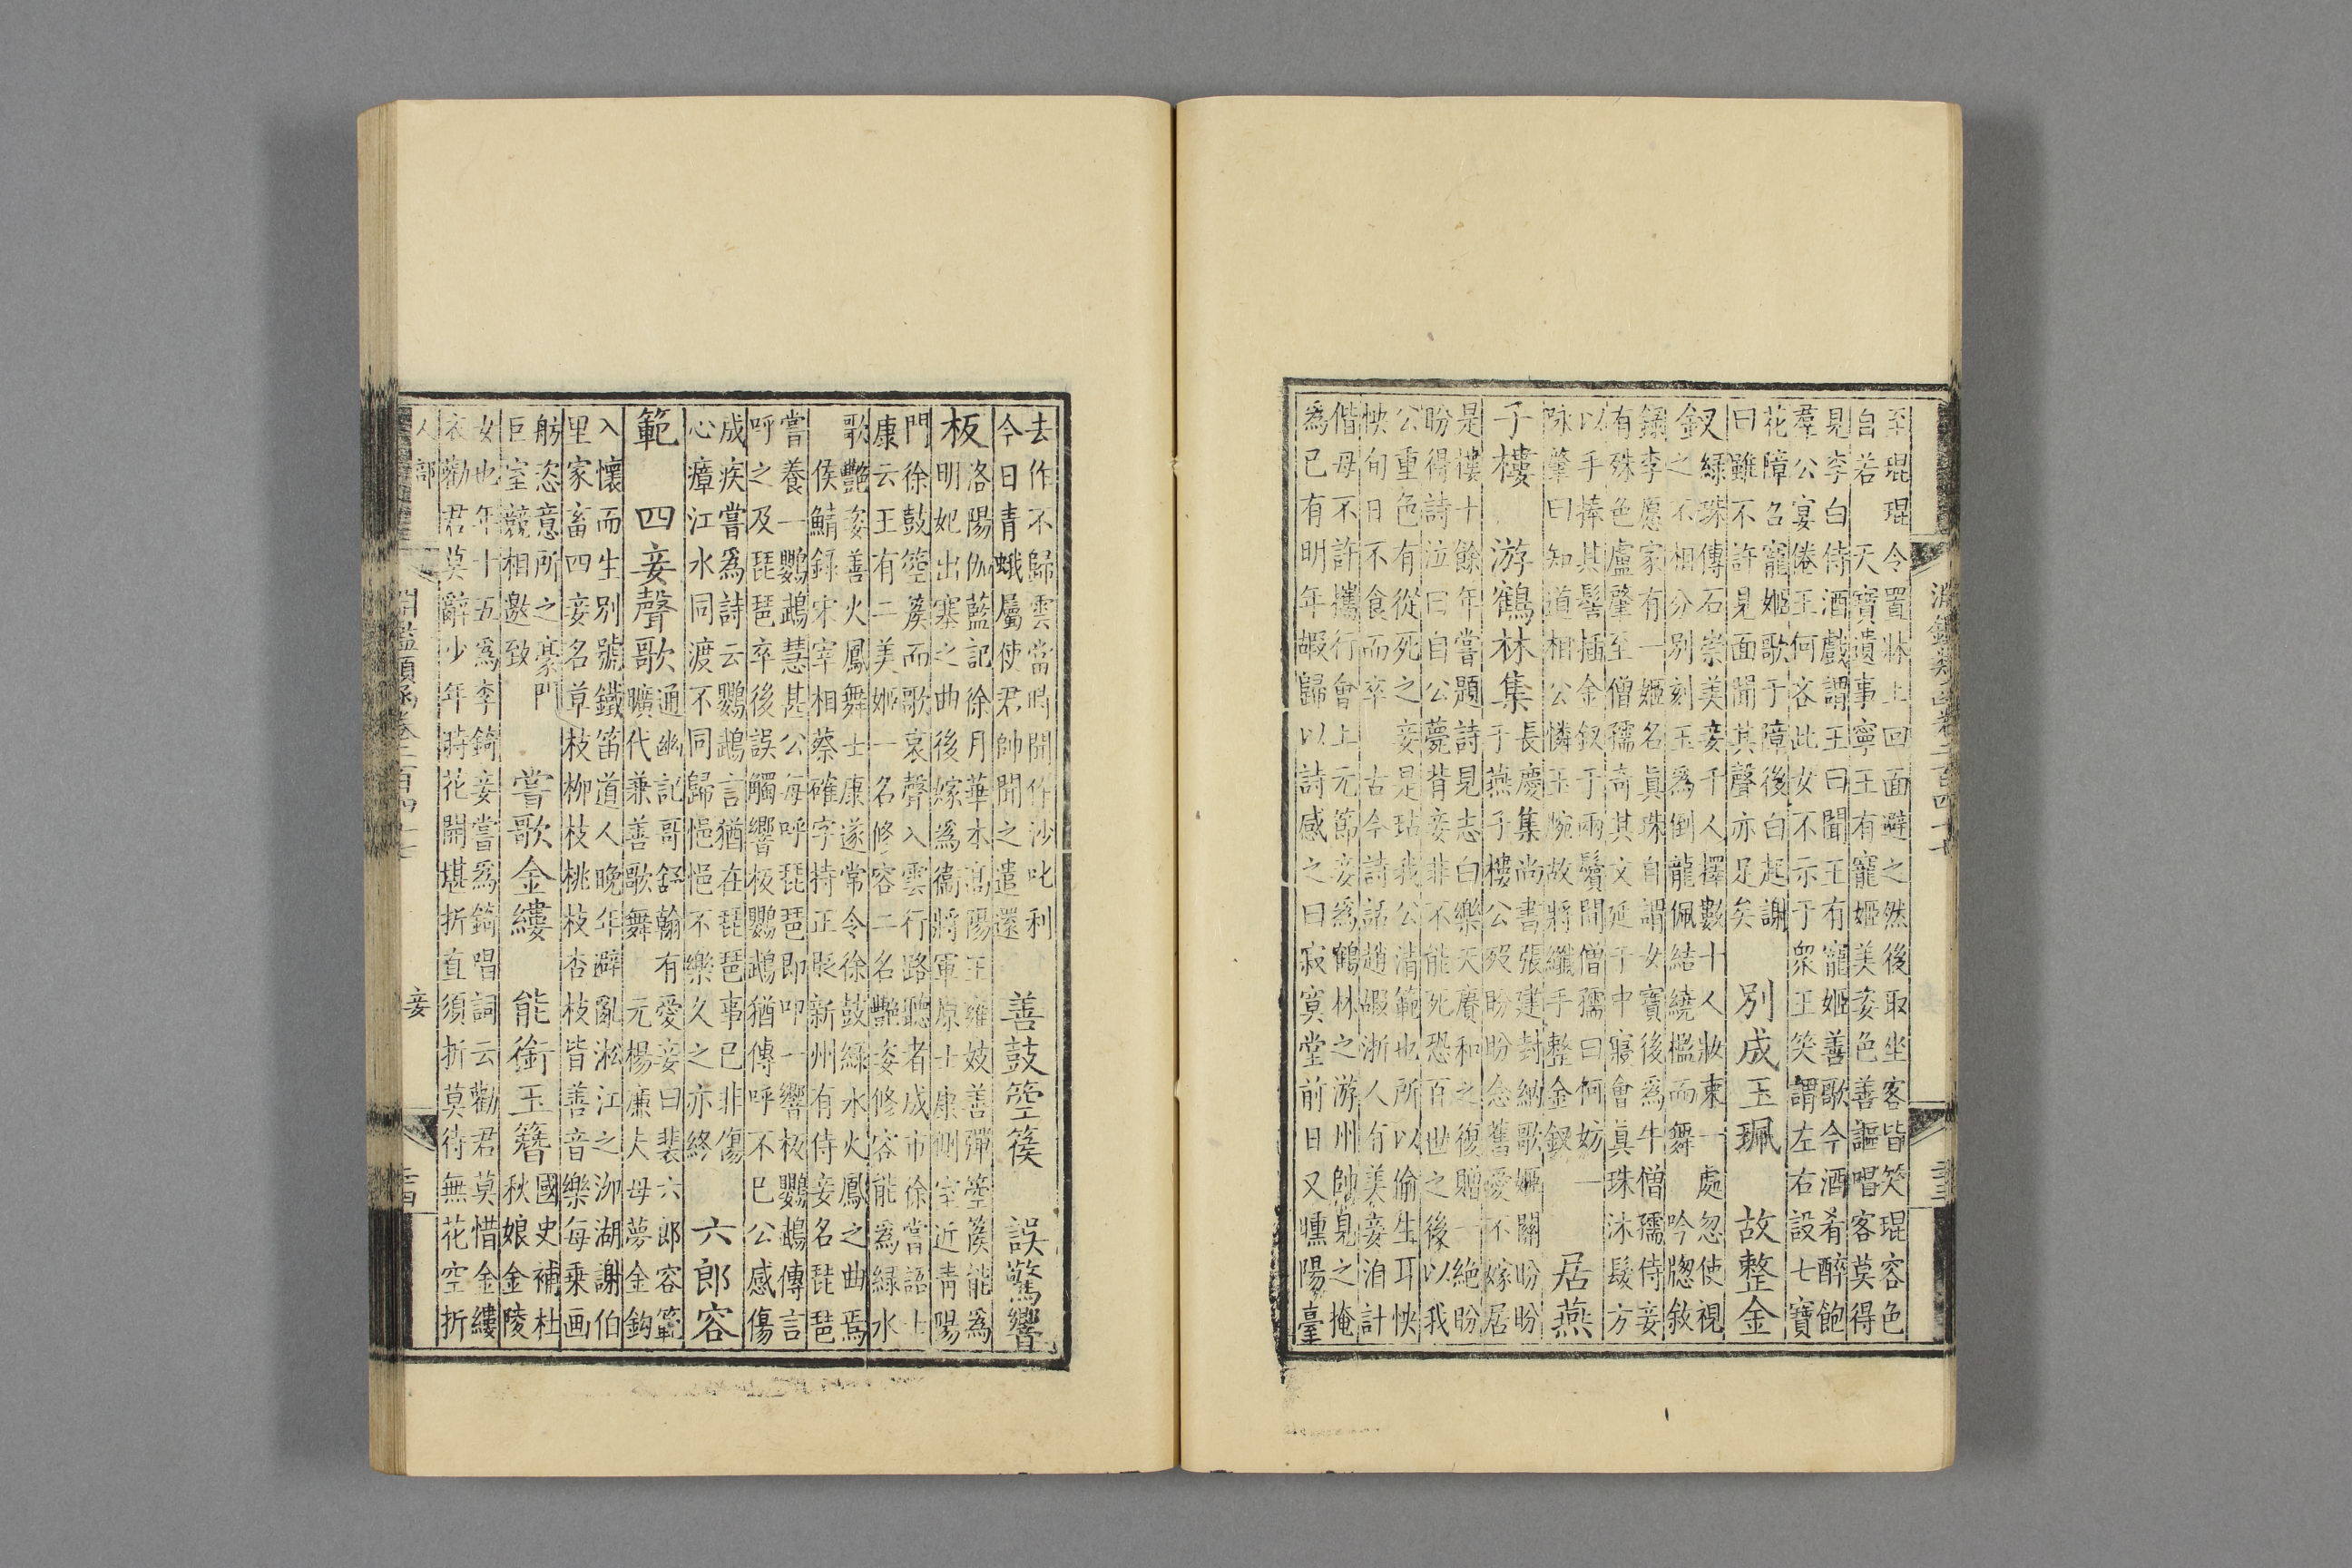 淵鑑類函卷二百四十七　三十三
至琨琨令置牀上回面避之然後取坐客皆笑琨容色
自若　天寶遺事寧王有寵姬美姿色善謳唱客莫得
見李白侍酒戲謂王曰聞王有寵姬善歌今酒肴醉飽
羣公宴倦王何吝此女不示于衆王笑謂左右設七寶
花障召寵姬歌于障後白起謝
曰雖不許見面聞其聲亦足矣
別成玉珮　故整金
釵
綠珠傳石崇美妾千人擇數十人妝束一處忽使視
之不相分別刻玉爲倒龍佩結繞檻而舞　吟牕敘
錄李愿家有一姬名眞珠自謂女寶後爲牛僧孺侍妾
有殊色盧肇至僧孺奇其文延于中寢會眞珠沐髮方
以手捧其髻插金釵于兩鬢間僧孺曰何妨一
詠肇曰知道相公憐玉腕故將纖手整金釵
居燕
子樓　游鶴林集
長慶集尚書張建封納歌姬關盼盼
于燕子樓公歿盼盼念舊愛不嫁居
是樓十餘年嘗題詩見志白樂天賡和之復贈一絕盼
盼得詩泣曰自公薨背妾非不能死恐百世之後以我
公重色有從死之妾是玷我公清範也所以偷生耳怏
怏旬日不食而卒　古今詩話趙嘏浙人有美妾洎計
偕母不許攜行會上元節妾爲鶴林之游州帥見之掩
爲已有明年嘏歸以詩感之曰寂寞堂前日又曛陽臺
去作不歸雲當時聞作沙吒利
今日青蛾屬使君帥聞之遣還
善鼓箜篌　誤驚響
板
洛陽伽藍記徐月華本高陽王雍妓善彈箜篌能爲
明妃出塞之曲後嫁爲衛將軍原士康側室近青陽
門徐鼓箜篌而歌哀聲入雲行路聽者成市徐嘗語士
康云王有二美姬一名修容二名艷姿修容能爲綠水
歌艷姿善火鳳舞士康遂常令徐鼓綠水火鳳之曲焉
侯鯖錄宋宰相蔡確字持正貶新州有侍妾名琵琶
嘗養一鸚鵡慧甚公每呼琵琶即叩一響板鸚鵡傳言
呼之及琵琶卒後誤觸響板鸚鵡猶傳呼不已公感傷
成疾嘗爲詩云鸚鵡言猶在琵琶事已非傷
心瘴江水同渡不同歸悒悒不樂久之亦終
六郎容
範　四妾聲歌
通幽記哥舒翰有愛妾曰裴六郎容範
曠代兼善歌舞　元楊廉夫母夢金鈎
入懷而生別號鐵笛道人晚年避亂淞江之泖湖謝伯
里家畜四妾名草枝柳枝桃枝杏枝皆善音樂每乗画
舫恣意所之豪門
巨室競相邀致
嘗歌金縷　能銜玉簪
國史補杜
秋娘金陵
女也年十五爲李錡妾嘗爲錡唱詞云勸君莫惜金縷
衣勸君莫辭少年時花開堪折直須折莫待無花空折
人部　淵鑑類函卷二百四十七　妾　三十四